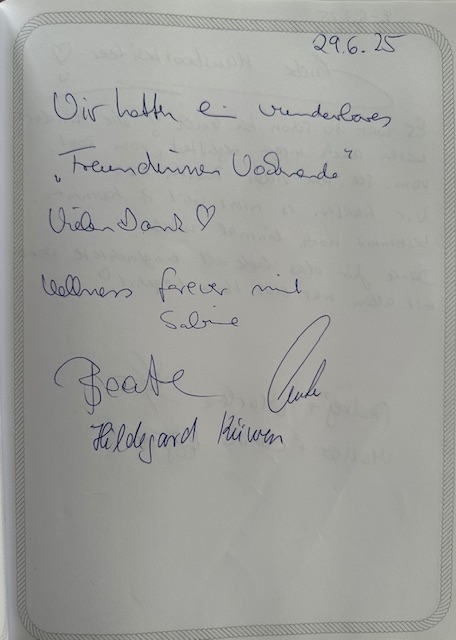 29.6.25
Wir hatten ein wunderbares
„Freundinnen Wochenende“
Vielen Dank ♡
Wellness forever mit
Sabine
Beate
Hildegard Küwen